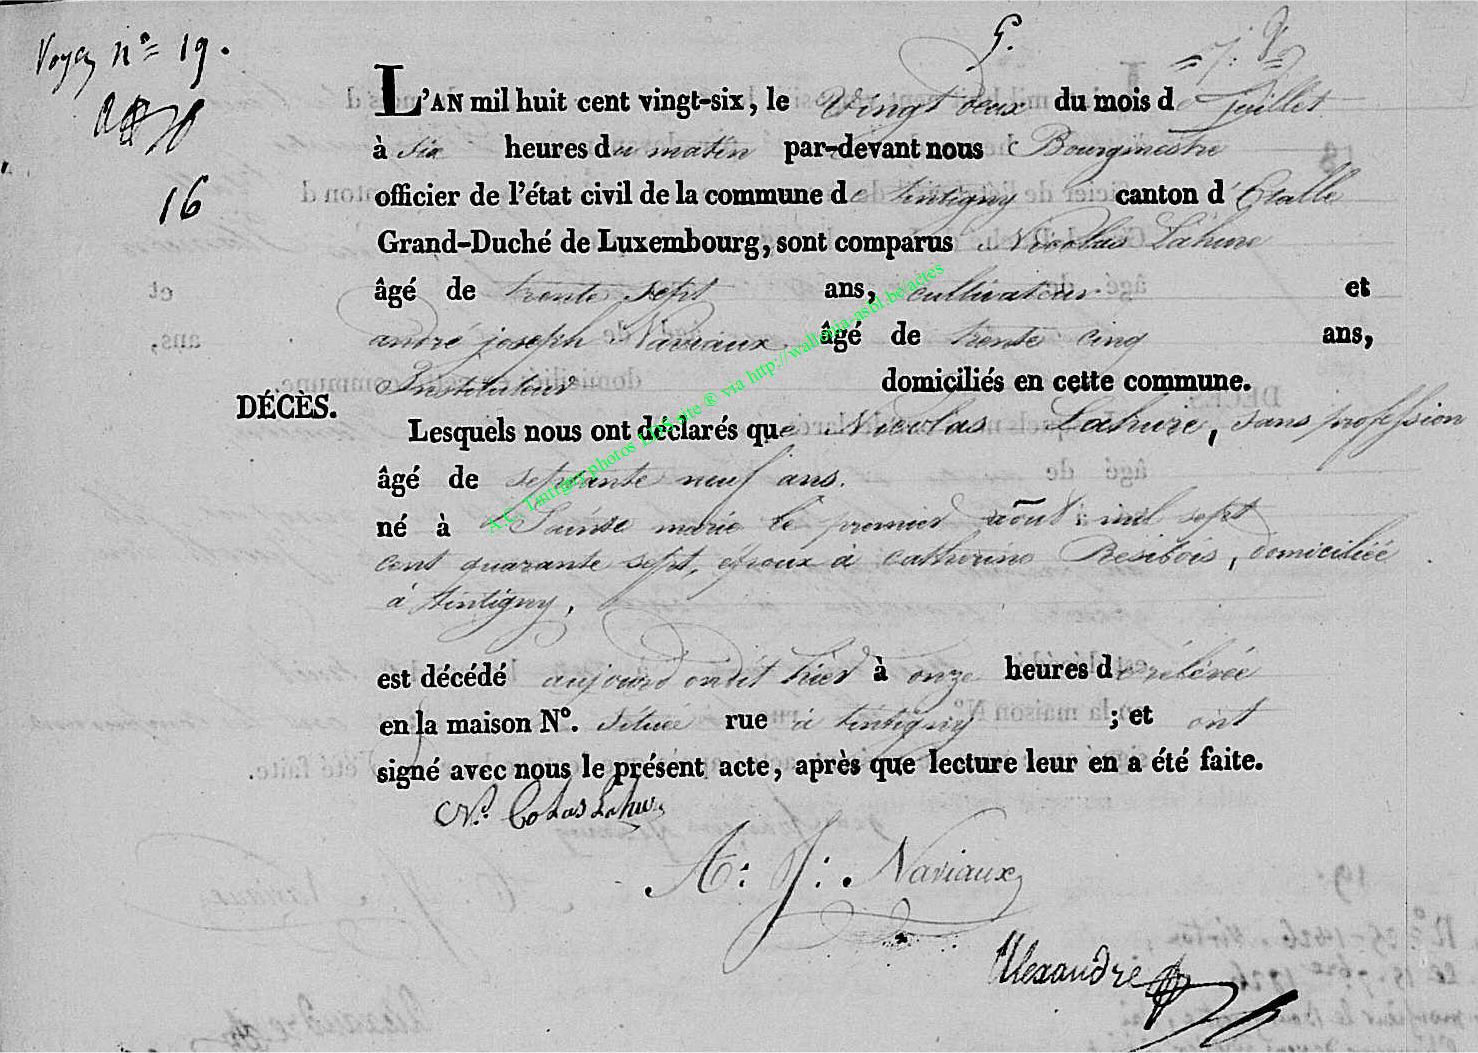 Voyez n° 19.
5.
L'AN mil huit cent vingt-six, le Vingt deux du mois de Juillet
à Six heures du matin par-devant nous Bourgmestre
16
officier de l'état civil de la commune de tintigny canton d'Etalle
Grand-Duché de Luxembourg, sont comparus Nicolas Lahure
âgé de trente sept ans, cultivateur et
andré joseph Naviaux âgé de trente cinq ans,
Instituteur domiciliés en cette commune.
DÉCÈS.
Lesquels nous ont déclarés que Nicolas Lahure, sans profession
âgé de septante neuf ans.
né à Sainte marie le premier août mil sept
cent quarante sept, époux à catherine Resibois, domiciliée
à tintigny,
est décédé aujourd'ondit hier à onze heures de rélévée
en la maison N°. située rue à tintigny ; et ont
signé avec nous le présent acte, après que lecture leur en a été faite.
A: J: Naviaux
Alexandre
A.C. Tintigny photos LDS site ® via http://wallonia-asbl.be/actes